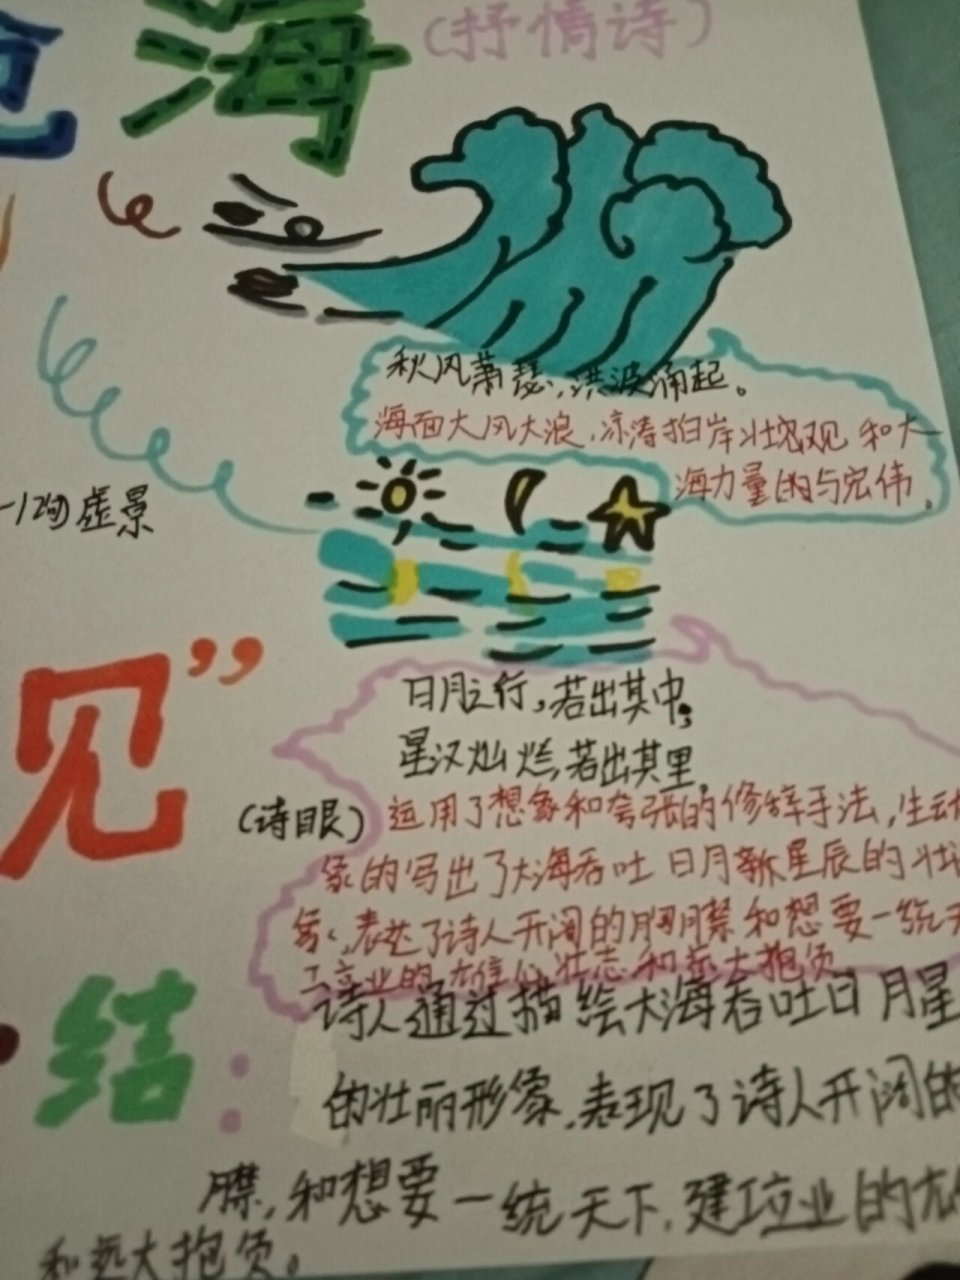 沧海(抒情诗)
秋风萧瑟，洪波涌起。
海面大风大浪，凉涛拍岸壮观和大
海力量的与宏伟。
虚景
日月之行，若出其中；
星汉灿烂，若出其里。
见”
(诗眼)
运用了想象和夸张的修辞手法，生动
象的写出了大海吞吐日月新星辰的壮
表达了诗人开阔的胸襟和想要一统天
业的 信心壮志和远大抱负
诗人通过描绘大海吞吐日月星
结:
的壮丽形象，表现了诗人开阔的
襟，和想要一统天下，建立业的
和远大抱负。